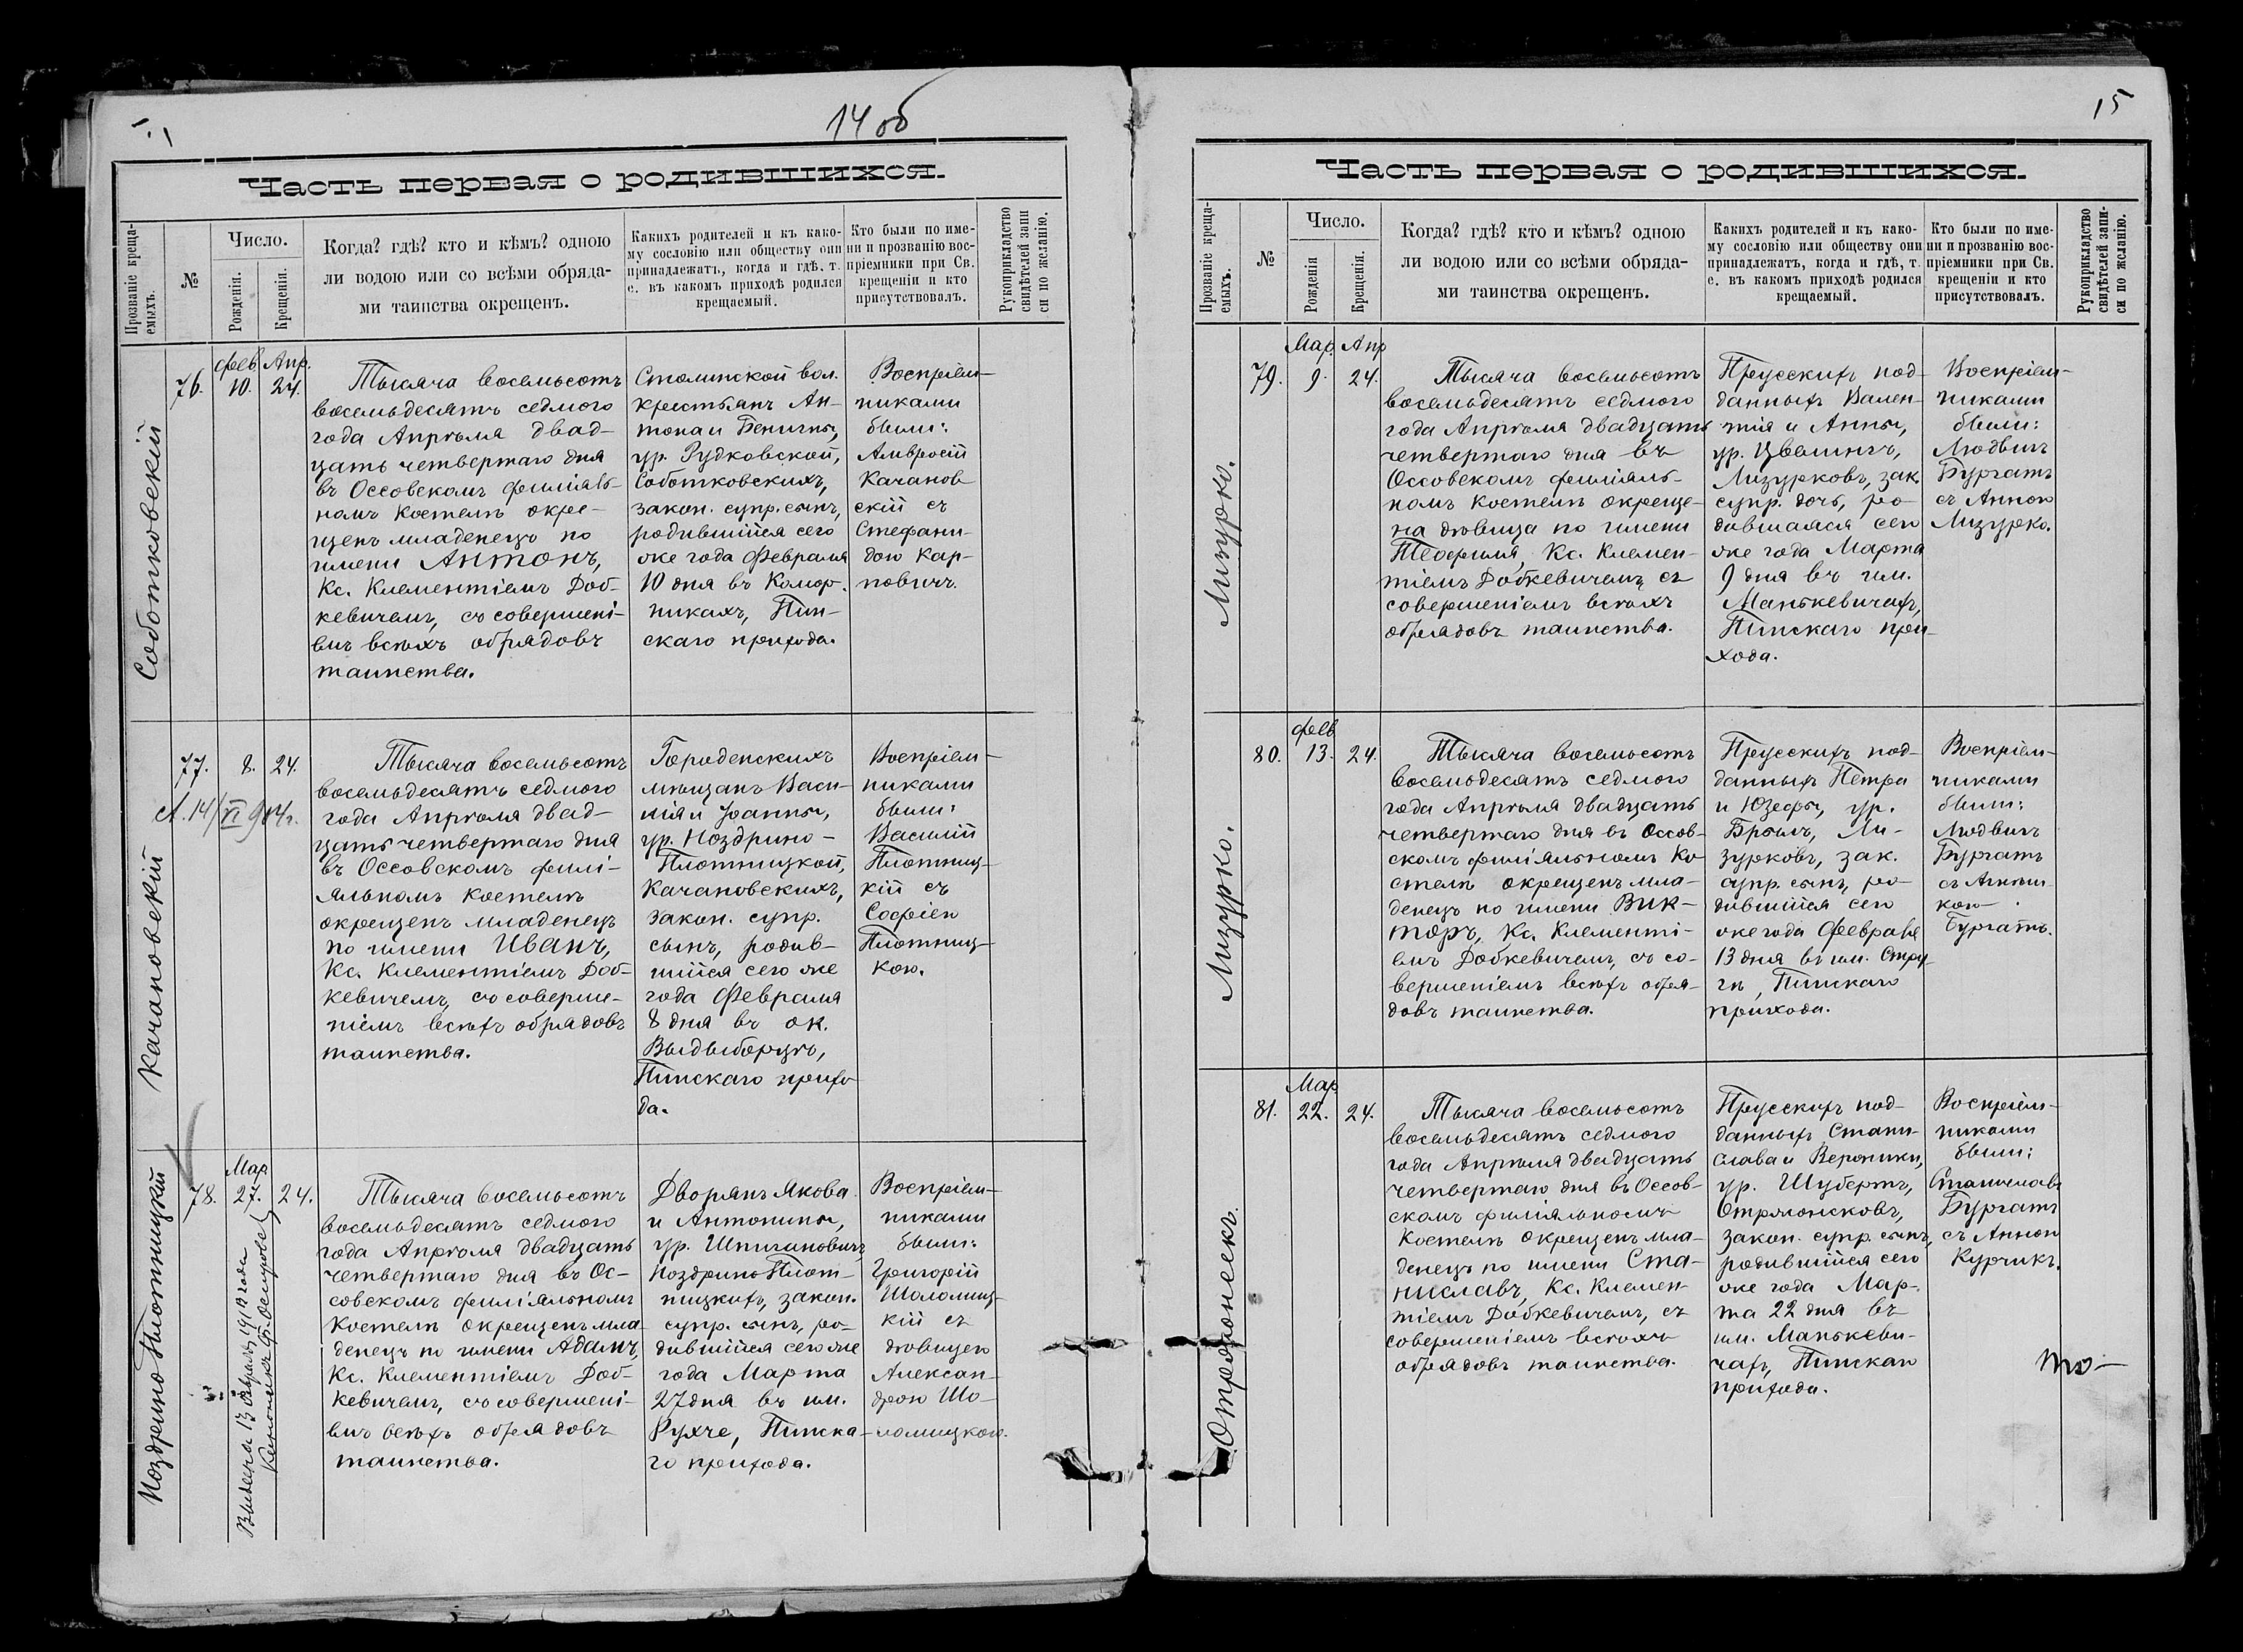 14 об
Часть первая о родившихся.
Прозваніе креща-
емыхъ.
№
Число.
Рожденія.
Крещенія.
Когда? гдѣ? кто и кѣмъ? одною
ли водою или со всѣми обряда-
ми таинства окрещенъ.
Какихъ родителей и къ како-
му сословію или обществу они
принадлежатъ, когда и гдѣ, т.
е. въ какомъ приходѣ родился
крещаемый.
Кто были по име-
ни и прозванію вос-
пріемники при Св.
крещеніи и кто
присутствовалъ.
Рукоприкладство
свидѣтелей запи
си по желанію.
Соботковскій
76.
Фев.
10.
Апр.
24.
Тысяча восемьсотъ
восемьдесятъ седмого
года Апрѣля двад-
цать четвертаго дня
въ Оссовскомъ филіаль-
номъ костелѣ окре-
щенъ младенецъ по
имени Антонъ,
Кс. Клементіемъ Доб-
кевичемъ, съ совершені-
емъ всѣхъ обрядовъ
таинства.
Столинской вол.
крестьянъ Ан-
тона и Бенигны,
ур. Рудковской,
Соботковскихъ,
закон. супр. сынъ,
родившійся сего
же года Февраля
10 дня въ Комор-
никахъ, Пин-
скаго прихода.
Воспріем-
никами
были:
Амвросій
Качанов
скій съ
Стефани-
дою Кар-
повичъ.
Качановскій
77.
8.
24.
Тысяча восемьсотъ
восемьдесятъ седмого
года Апрѣля двад-
цать четвертаго дня
въ Оссовскомъ филі-
яльномъ костелѣ
окрещенъ младенецъ
по имени Иванъ,
Кс. Клементіемъ Доб-
кевичемъ, съ соверше-
ніемъ всѣхъ обрядовъ
таинства.
Городенскихъ
мѣщанъ Васи-
лія и Іоанны,
ур. Ноздрино-
Плотницкой,
Качановскихъ,
закон. супр.
сынъ, родив-
шійся сего же
года Февраля
8 дня въ ок.
Выдыборцѣ,
Пинскаго прихо-
да.
Воспріем-
никами
были:
Василій
Плотниц-
кій съ
Софіею
Плотниц-
кою.
Ноздрино Плотницкій
78.
Мар.
27.
24.
Тысяча восемьсотъ
восемьдесятъ седмого
года Апрѣля двадцать
четвертаго дня въ Ос-
совскомъ филіяльномъ
костелѣ окрещенъ мла-
денецъ по имени Адамъ,
Кс. Клементіемъ Доб-
кевичемъ, съ совершені-
емъ всѣхъ обрядовъ
таинства.
Дворянъ Якова
и Антонины,
ур. Шпигановичъ,
Ноздрино Плот-
ницкихъ, закон.
супр. сынъ, ро-
дившійся сего же
года Марта
27 дня въ им.
Рухче, Пинска-
го прихода.
Воспріем-
никами
были:
Григорій
Шоломиц-
кій съ
дѣвицею
Алексан-
дрою Шо-
ломицкою.
15
Часть первая о родившихся.
Прозваніе креща-
емыхъ.
№
Число.
Рожденія
Крещенія.
Когда? гдѣ? кто и кѣмъ? одною
ли водою или со всѣми обряда-
ми таинства окрещенъ.
Какихъ родителей и къ како-
му сословію или обществу они
принадлежатъ, когда и гдѣ, т.
е. въ какомъ приходѣ родился
крещаемый.
Кто были по име-
ни и прозванію вос-
пріемники при Св.
крещеніи и кто
присутствовалъ.
Рукоприкладство
свидѣтелей запи-
си по желанію.
Лизурко.
79.
Мар.
9.
Апр
24.
Тысяча восемьсотъ
восемьдесятъ седмого
года Апрѣля двадцать
четвертаго дня въ
Оссовскомъ филіяль-
номъ костелѣ окреще-
на дѣвица по имени
Теофилія, Кс. Клемен-
тіемъ Добкевичемъ, съ
совершеніемъ всѣхъ
обрядовъ таинства.
Прусскихъ под-
данныхъ Вален-
тія и Анны,
ур. Цвелингъ,
Лизурковъ, зак.
супр. дочь, ро-
дившаяся сего
же года Марта
9 дня въ им.
Манькевичахъ,
Пинскаго при-
хода.
Воспріем-
никами
были:
Людвигъ
Бургатъ
съ Анною
Лизурко.
Лизурко.
80.
Фев
13.
24.
Тысяча восемьсотъ
восемьдесятъ седмого
года Апрѣля двадцать
четвертаго дня въ Оссов-
скомъ филіяльномъ ко
стелѣ окрещенъ мла-
денецъ по имени Вик-
торъ, Кс. Клементі-
емъ Добкевичемъ, съ со-
вершеніемъ всѣхъ обря-
довъ таинства.
Прусскихъ под-
данныхъ Петра
и Юзефы, ур.
Брѣмъ, Ли-
зурковъ, зак.
супр. сынъ, ро-
дившійся сего
же года Февраля
13 дня въ им. Стру-
гѣ, Пинскаго
прихода.
Воспріем-
никами
были:
Людвигъ
Бургатъ
съ Агнѣш-
кою
Бургатъ.
Отремонскъ.
81.
Мар
22.
24.
Тысяча восемьсотъ
восемьдесятъ седмого
года Апрѣля двадцать
четвертаго дня въ Оссов-
скомъ филіяльномъ
костелѣ окрещенъ мла-
денецъ по имени Ста-
ниславъ, Кс. Клемен-
тіемъ Добкевичемъ, съ
совершеніемъ всѣхъ
обрядовъ таинства.
Прусскихъ под-
данныхъ Стани-
слава и Вероники,
ур. Шубертъ,
закон. супр. сынъ,
родившійся сего
же года Мар-
та 22 дня въ
им. Манькеви-
чахъ, Пинскаго
прихода.
Воспріем-
никами
были:
Станиславъ
Бургатъ
съ Анною
Курчикъ.
то-